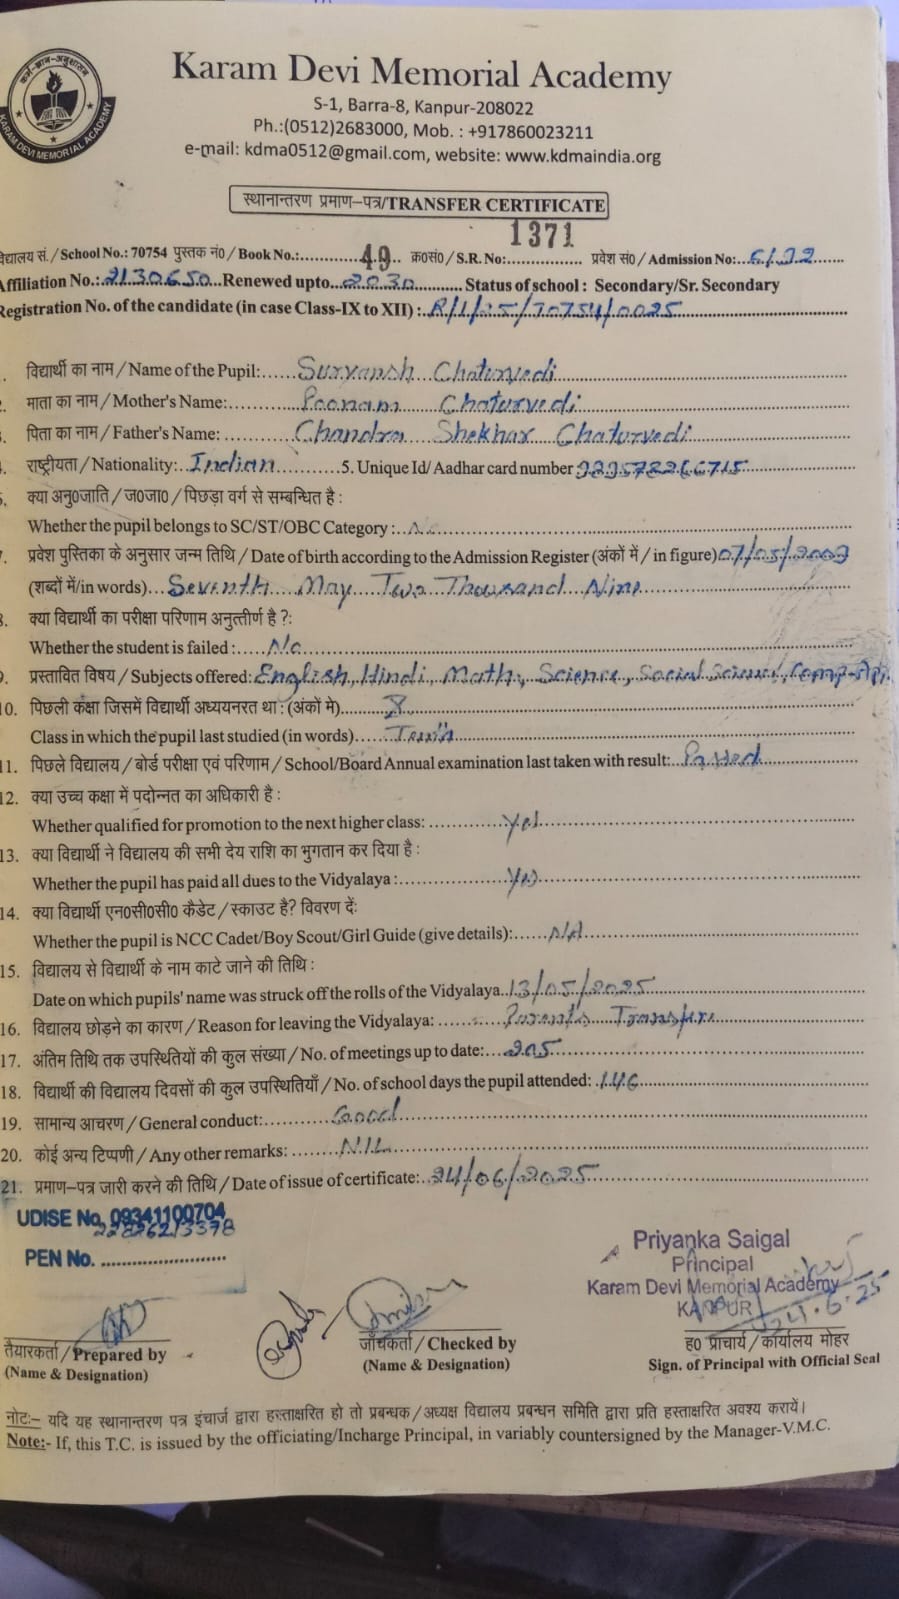 कर्म-ज्ञान-अनुशासन
KARAM DEVI MEMORIAL ACADEMY
Karam Devi Memorial Academy
S-1, Barra-8, Kanpur-208022
Ph.:(0512)2683000, Mob. : +917860023211
e-mail: kdma0512@gmail.com, website: www.kdmaindia.org
स्थानान्तरण प्रमाण-पत्र/TRANSFER CERTIFICATE
विद्यालय सं./School No.: 70754 पुस्तक नं0/Book No.: 49 क्र0सं0/S.R. No: 1371 प्रवेश सं0/Admission No:
Affiliation No.: 2130650 Renewed upto 2030 Status of school : Secondary/Sr. Secondary
Registration No. of the candidate (in case Class-IX to XII) : R/1/25/70754/0025
विद्यार्थी का नाम / Name of the Pupil: Suryansh Chaturvedi
माता का नाम / Mother's Name: Poonam Chaturvedi
पिता का नाम / Father's Name: Chandra Shekhar Chaturvedi
राष्ट्रीयता / Nationality: Indian 5. Unique Id/ Aadhar card number
क्या अनु0जाति / ज0जा0 / पिछड़ा वर्ग से सम्बन्धित है :
Whether the pupil belongs to SC/ST/OBC Category : No
प्रवेश पुस्तिका के अनुसार जन्म तिथि / Date of birth according to the Admission Register (अंकों में / in figure) 07/05/2009
(शब्दों में/in words) Seventh May Two Thousand Nine
क्या विद्यार्थी का परीक्षा परिणाम अनुत्तीर्ण है ?:
Whether the student is failed : No
प्रस्तावित विषय / Subjects offered: English, Hindi, Math, Science, Social Science, Comp-App.
10. पिछली कक्षा जिसमें विद्यार्थी अध्ययनरत था : (अंकों मे) X
Class in which the pupil last studied (in words) Tenth
11. पिछले विद्यालय / बोर्ड परीक्षा एवं परिणाम / School/Board Annual examination last taken with result: Passed
12. क्या उच्च कक्षा में पदोन्नत का अधिकारी है :
Whether qualified for promotion to the next higher class: Yes
13. क्या विद्यार्थी ने विद्यालय की सभी देय राशि का भुगतान कर दिया है :
Whether the pupil has paid all dues to the Vidyalaya : Yes
14. क्या विद्यार्थी एन0सी0सी0 कैडेट / स्काउट है? विवरण दें:
Whether the pupil is NCC Cadet/Boy Scout/Girl Guide (give details): N/A
15. विद्यालय से विद्यार्थी के नाम काटे जाने की तिथि :
Date on which pupils' name was struck off the rolls of the Vidyalaya 13/05/2025
16. विद्यालय छोड़ने का कारण / Reason for leaving the Vidyalaya: Parent's Transfer
17. अंतिम तिथि तक उपस्थितियों की कुल संख्या / No. of meetings up to date: 205
18. विद्यार्थी की विद्यालय दिवसों की कुल उपस्थितियाँ / No. of school days the pupil attended: 146
19. सामान्य आचरण / General conduct: Good
20. कोई अन्य टिप्पणी / Any other remarks: NIL
21. प्रमाण-पत्र जारी करने की तिथि / Date of issue of certificate: 24/06/2025
UDISE No. 09341100704
PEN No.
Priyanka Saigal
Principal
Karam Devi Memorial Academy
KANPUR
24.6.25
तैयारकर्ता / Prepared by
(Name & Designation)
जाँचकर्ता / Checked by
(Name & Designation)
ह0 प्राचार्य / कार्यालय मोहर
Sign. of Principal with Official Seal
नोट:- यदि यह स्थानान्तरण पत्र इंचार्ज द्वारा हस्ताक्षरित हो तो प्रबन्धक / अध्यक्ष विद्यालय प्रबन्धन समिति द्वारा प्रति हस्ताक्षरित अवश्य करायें।
Note:- If, this T.C. is issued by the officiating/Incharge Principal, in variably countersigned by the Manager-V.M.C.